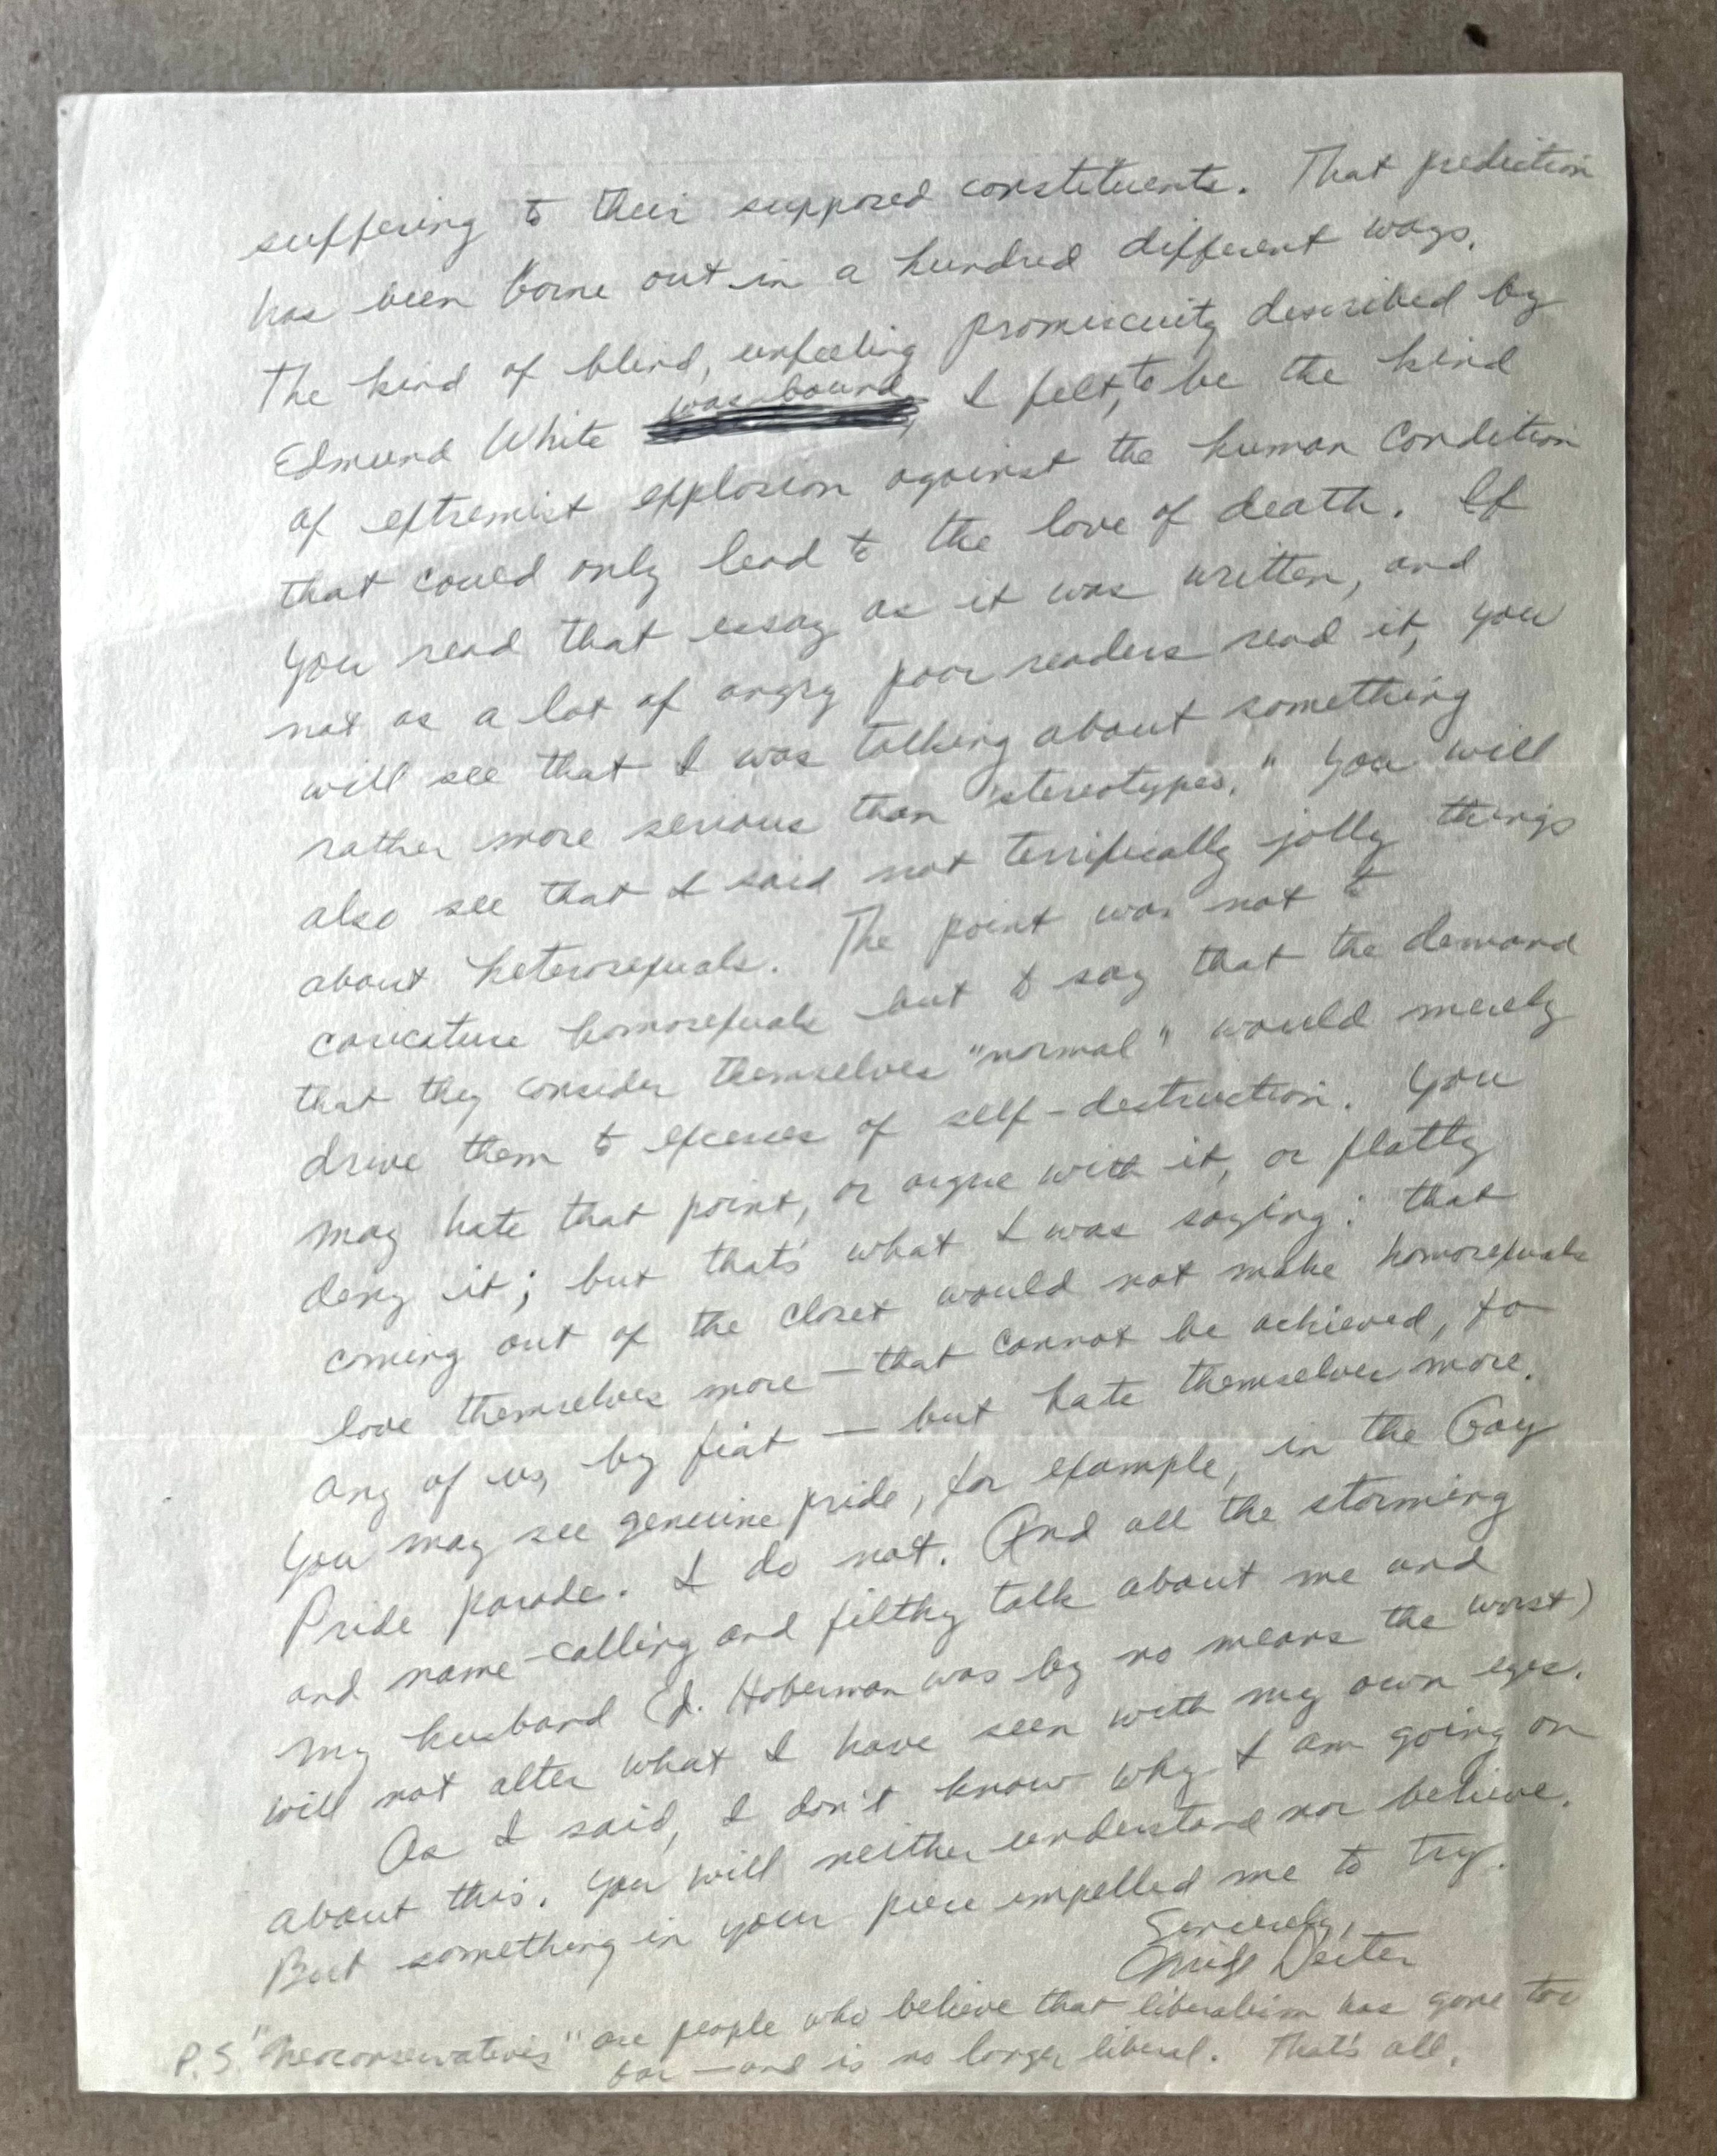 suffering to their supposed constituents. That prediction
has been borne out in a hundred different ways.
The kind of blind, unfeeling promiscuity described by
Edmund White was bound, I felt, to be the kind
of extremist explosion against the human condition
that could only lead to the love of death. If
you read that essay as it was written, and
not as a lot of angry poor readers read it, you
will see that I was talking about something
rather more serious than "stereotypes." You will
also see that I said not terrifically jolly things
about heterosexuals. The point was not to
caricature homosexuals but to say that the demand
that they consider themselves "normal" would merely
drive them to excesses of self-destruction. You
may hate that point, or argue with it, or flatly
deny it; but that's what I was saying: that
coming out of the closet would not make homosexuals
love themselves more — that cannot be achieved, for
any of us, by fiat — but hate themselves more.
You may see genuine pride, for example, in the Gay
Pride parade. I do not. And all the storming
and name-calling and filthy talk about me and
my husband (J. Hoberman was by no means the worst)
will not alter what I have seen with my own eyes.
As I said, I don't know why I am going on
about this. You will neither understand nor believe.
But something in your piece impelled me to try.
Sincerely,
Midge Decter
P.S. "Neoconservatives" are people who believe that liberalism has gone too
far — and is no longer liberal. That's all.